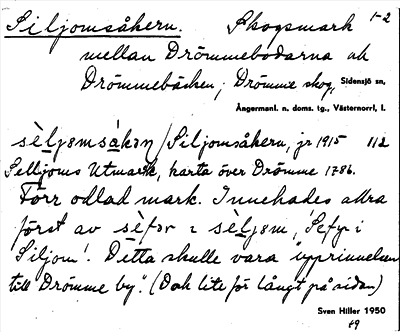 Siljomsåkern. Skogsmark 1-2
mellan Drömmebodarna ock
Drömmebäcken, Drömme skog, Sidensjö sn,
Ångermanl. n. doms. tg., Västernorrl. l.
sèljomsåkəɳ /Siljomsåkern, jr 1915 112
Selljoms Utmark, karta över Drömme 1786.
Förr odlad mark. Innehades allra
först av sèfər i sèljom, 'Sefyr i
Siljom'. Detta skulle vara "upprinnelsen
till Drömme by". (Dock lite för långt på sidan)
Sven Hiller 1950
49